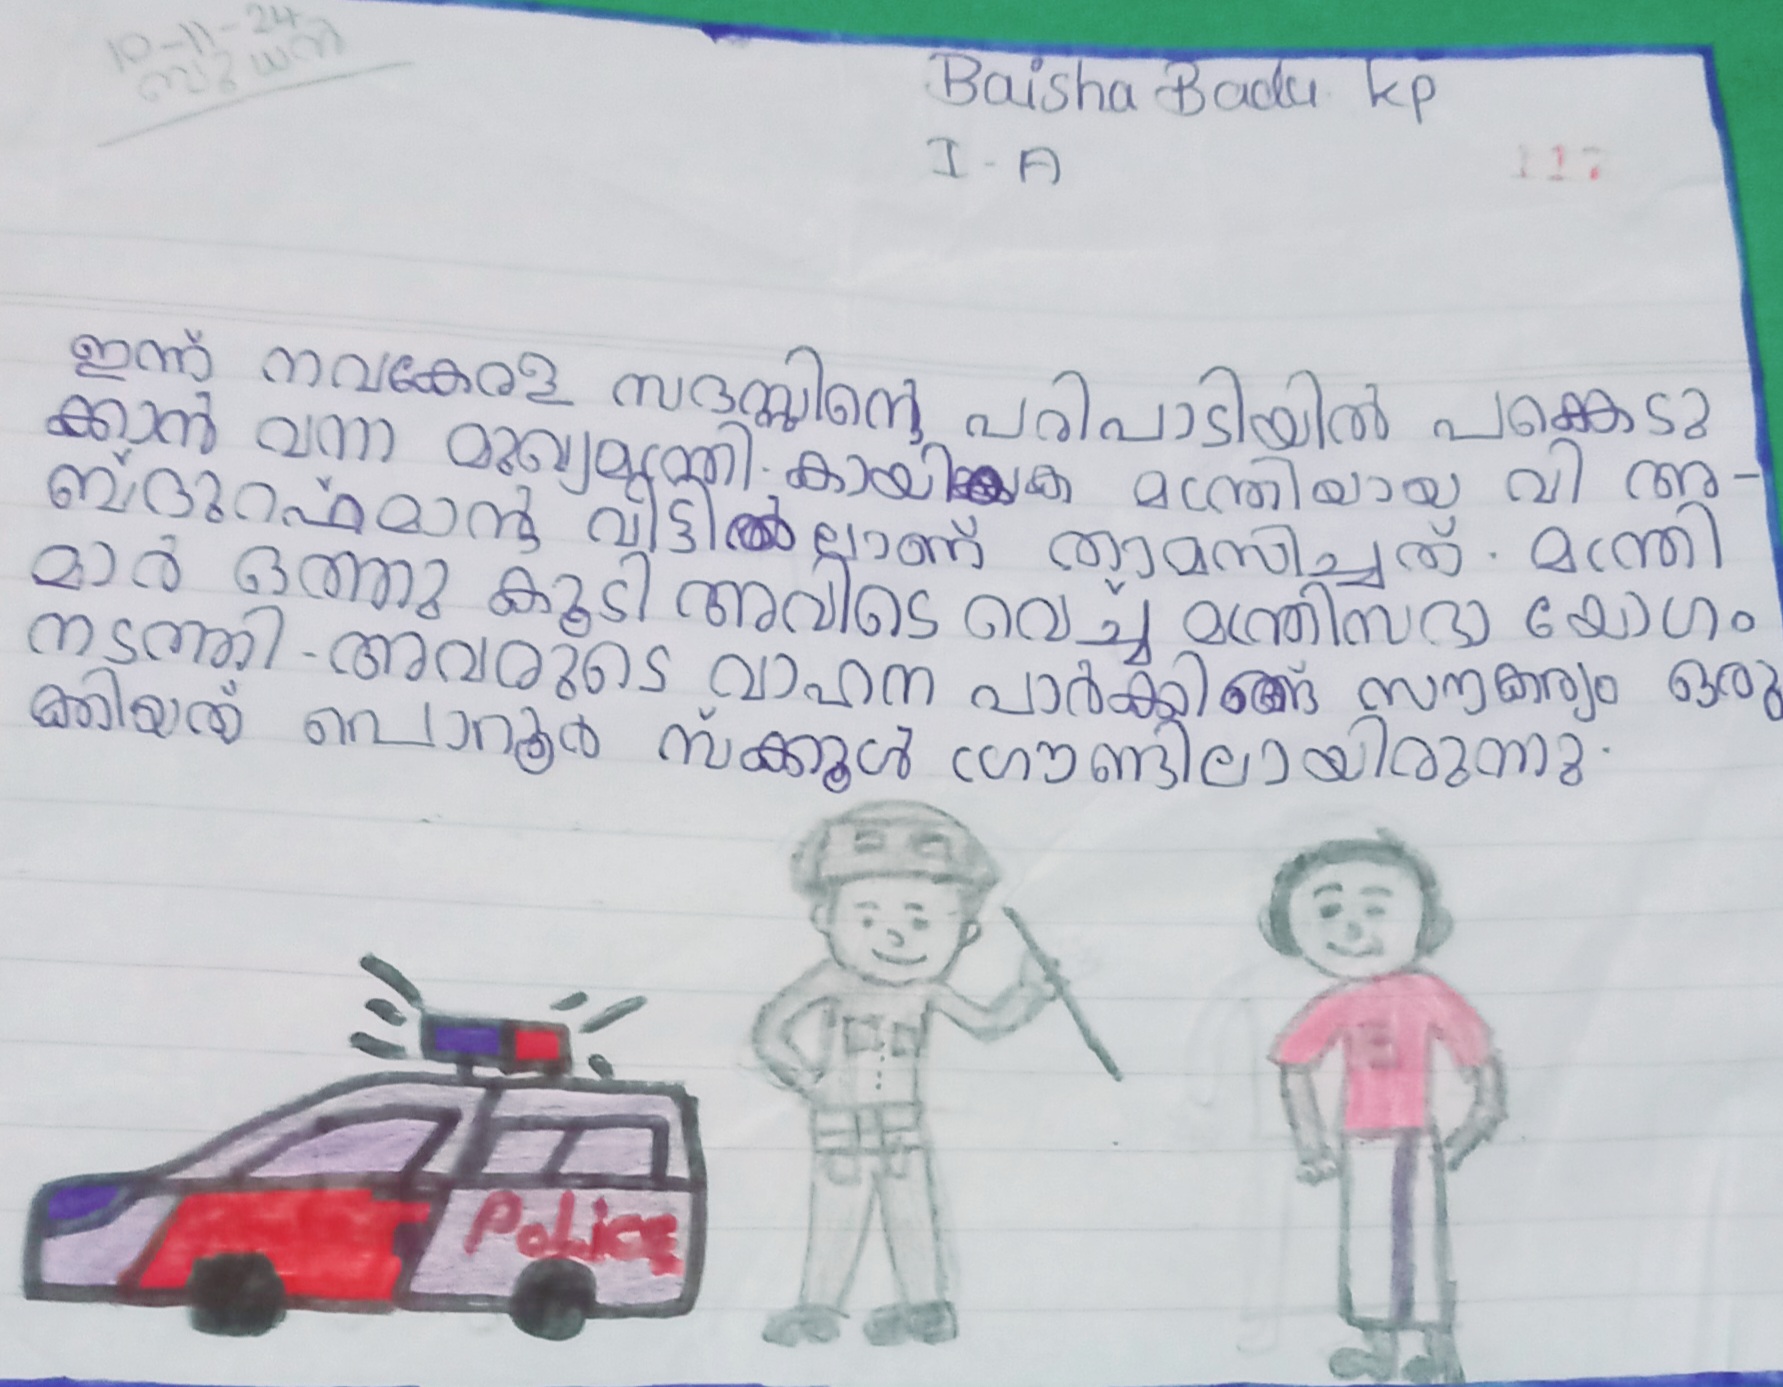 10-11-24
ബുധൻ
Baisha Badu kp
I - A
117
ഇന്ന് നവകേരള സദസ്സിന്റെ പരിപാടിയിൽ പങ്കെടു
ക്കാൻ വന്ന മുഖ്യമന്ത്രി. കായിക മന്ത്രിയായ വി അ-
ബ്ദുറഹ്മാന്റെ വീട്ടിൽ ലാണ് താമസിച്ചത്. മന്ത്രി
മാർ ഒത്തു കൂടി അവിടെ വെച്ച് മന്ത്രിസഭാ യോഗം
നടത്തി. അവരുടെ വാഹന പാർക്കിങ്ങ് സൗകര്യം ഒരു
ക്കിയത് പൊറൂർ സ്ക്കൂൾ ഗ്രൗണ്ടിലായിരുന്നു.
Police